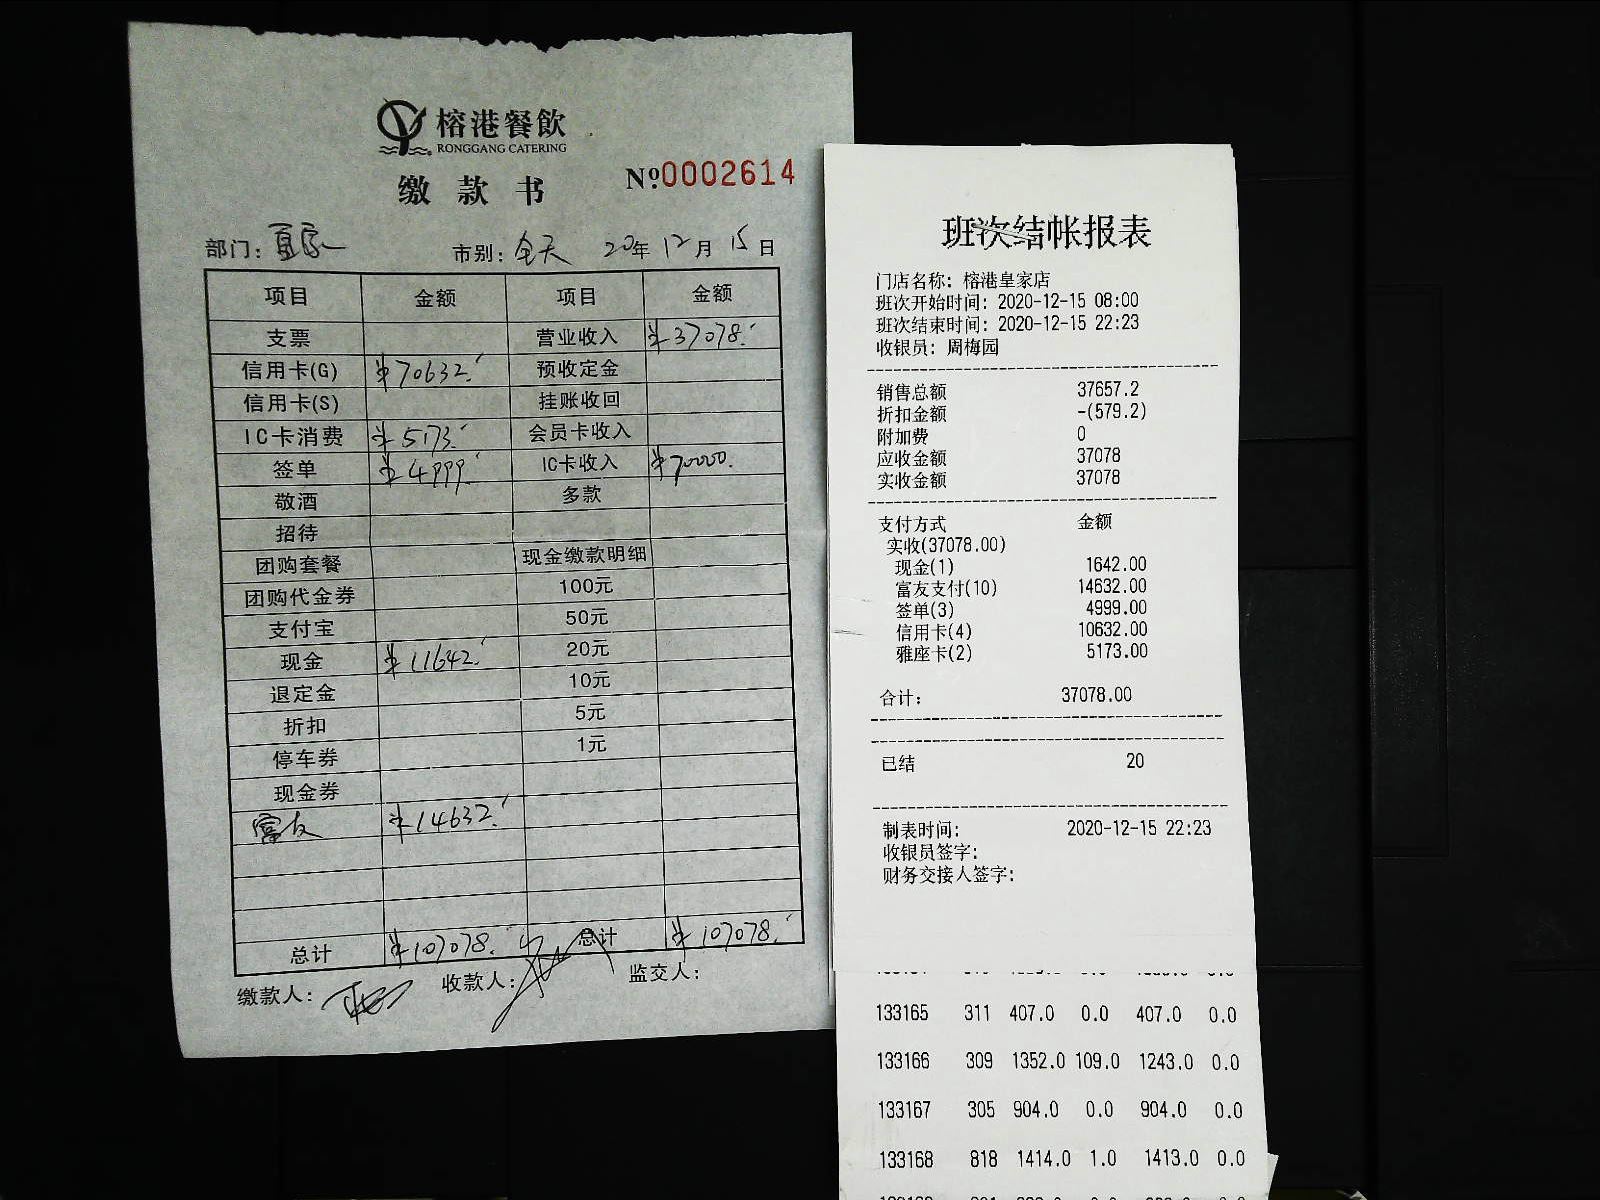 榕港餐飲
RONGGANG CATERING
缴款书
№0002614
部门: 皇家 市别: 全天 20年 12月 15日
项目 金额 项目 金额
支票 营业收入 ¥37078.
信用卡(G) ¥70632. 预收定金
信用卡(S) 挂账收回
IC卡消费 ¥5173. 会员卡收入
签单 ¥4999. IC卡收入 ¥70000.
敬酒 多款
招待
团购套餐 现金缴款明细
团购代金券 100元
支付宝 50元
现金 ¥11642. 20元
退定金 10元
折扣 5元
停车券 1元
现金券
富友 ¥14632.
总计 ¥107078. 总计 ¥107078.
缴款人: 收款人: 监交人:
班次结帐报表
门店名称: 榕港皇家店
班次开始时间: 2020-12-15 08:00
班次结束时间: 2020-12-15 22:23
收银员: 周梅园
销售总额 37657.2
折扣金额 -(579.2)
附加费 0
应收金额 37078
实收金额 37078
支付方式 金额
实收(37078.00)
现金(1) 1642.00
富友支付(10) 14632.00
签单(3) 4999.00
信用卡(4) 10632.00
雅座卡(2) 5173.00
合计: 37078.00
已结 20
制表时间: 2020-12-15 22:23
收银员签字:
财务交接人签字:
133165 311 407.0 0.0 407.0 0.0
133166 309 1352.0 109.0 1243.0 0.0
133167 305 904.0 0.0 904.0 0.0
133168 818 1414.0 1.0 1413.0 0.0